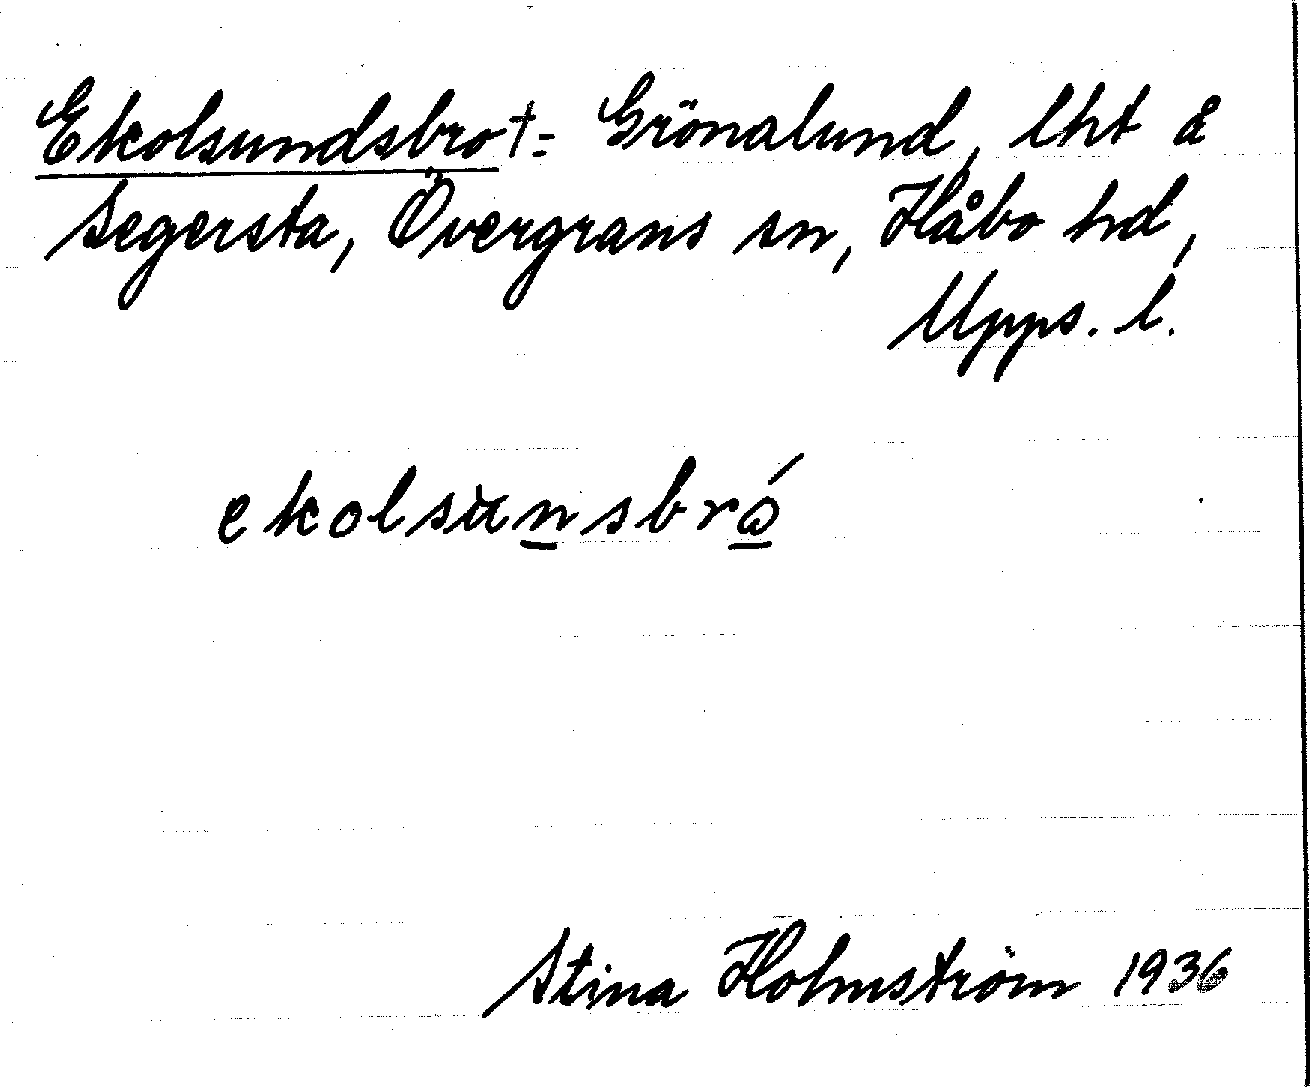 Ekolsundsbro†= Grönalund, lht å
Segersta, Övergrans sn, Håbo hd,
Upps. l.
ekolsùnsbró
Stina Holmström 1936